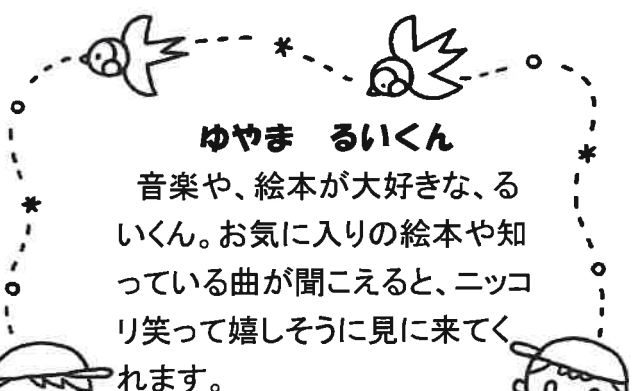 ゆやま　るいくん
音楽や、絵本が大好きな、る
いくん。お気に入りの絵本や知
っている曲が聞こえると、ニッコ
リ笑って嬉しそうに見に来てく
れます。